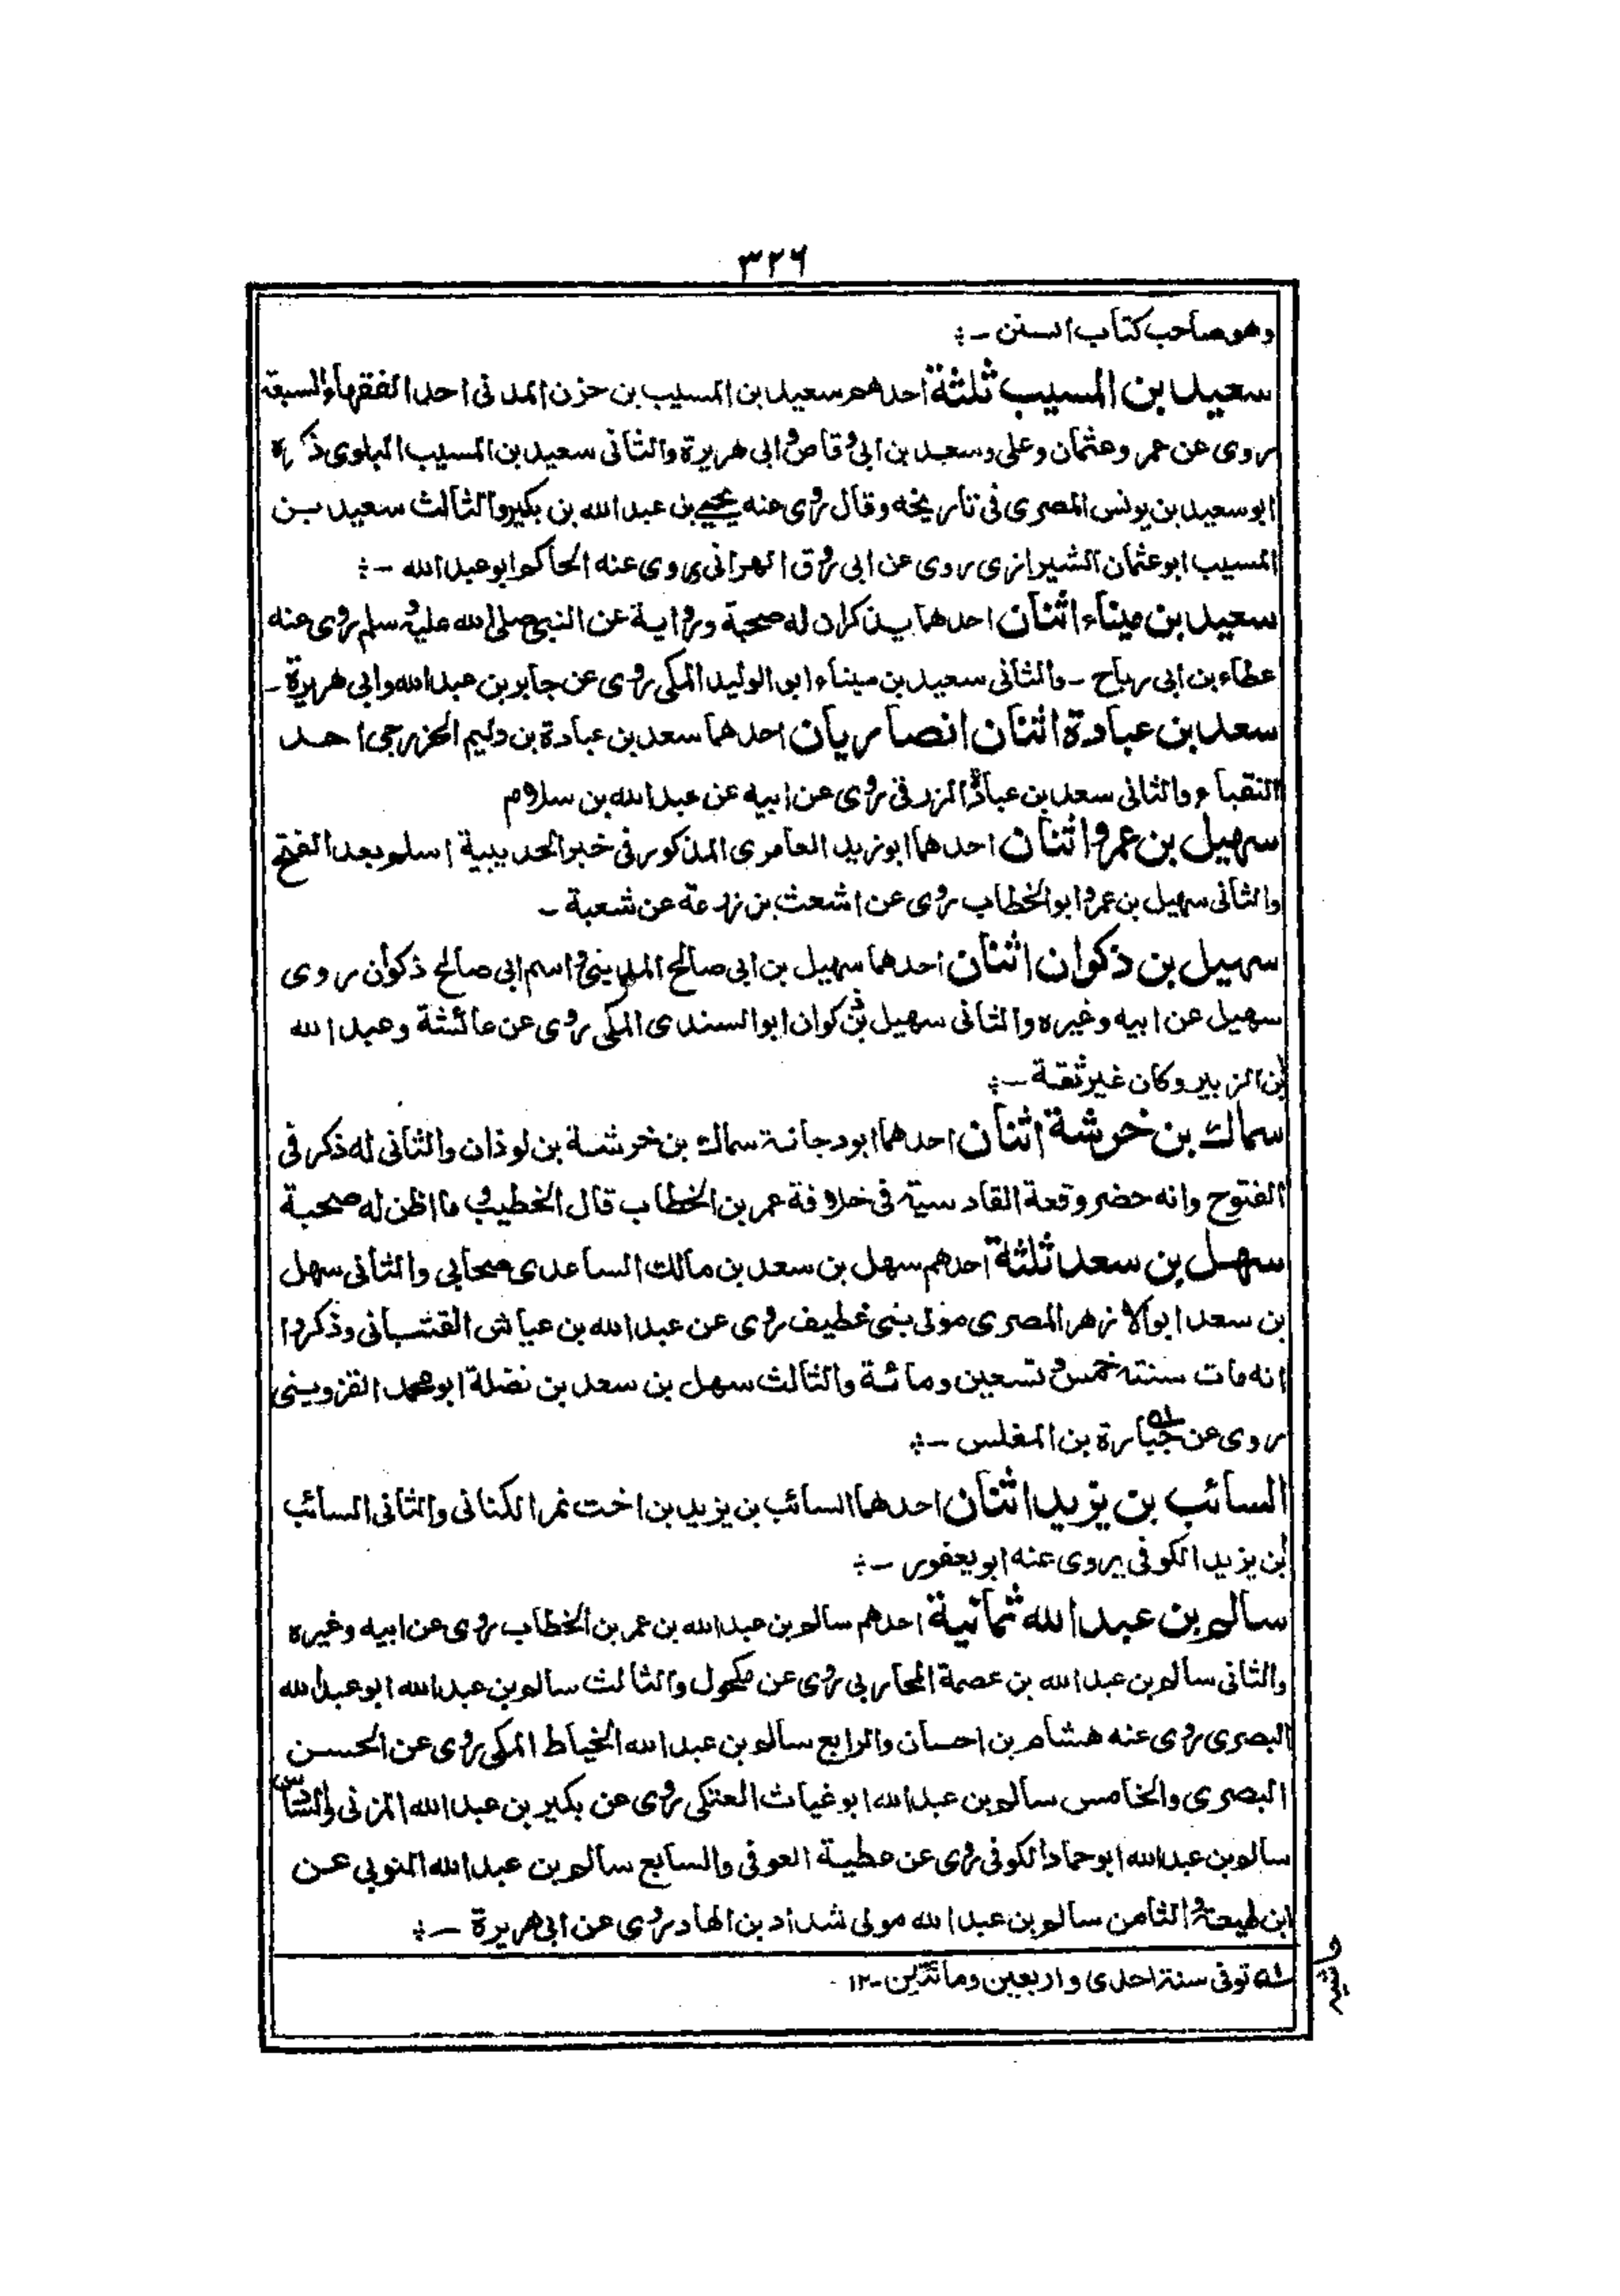 ٣٢٦
وهو صاحب كتاب السنن -:
سعيد بن المسيب ثلثة احدهم سعيد بن المسيب بن حزن المدنى احد الفقهاء السبعة
روى عن عمر وعثمان وعلى وسعد بن ابى وقاص وابى هريرة والثانى سعيد بن المسيب البلوى ذكره
ابو سعيد بن يونس المصرى فى تاريخه وقال روى عنه يحيى بن عبد الله بن بكير والثالث سعيد بن
المسيب ابو عثمان الشيرازى روى عن ابى روق الهزانى روى عنه الحاكم ابو عبد الله -:
سعيد بن ميناء اثنان احدهما يذكر ان له صحبة ورواية عن النبى صلى الله عليه وسلم روى عنه
عطاء بن ابى رباح - والثانى سعيد بن ميناء ابو الوليد المكى روى عن جابر بن عبد الله وابى هريرة -
سعد بن عبادة اثنان انصاريان احدهما سعد بن عبادة بن دليم الخزرجى احد
النقباء والثانى سعد بن عبادة الزرقى روى عن ابيه عن عبد الله بن سلام
سهيل بن عمرو اثنان احدهما ابو يزيد العامرى المذكور فى خبر الحديبية اسلم بعد الفتح
والثانى سهيل بن عمرو ابو الخطاب روى عن اشعث بن زرعة عن شعبة -
سهيل بن ذكوان اثنان احدهما سهيل بن ابى صالح المدينى واسم ابى صالح ذكوان روى
سهيل عن ابيه وغيره والثانى سهيل بن ذكوان ابو السندى المكى روى عن عائشة وعبد الله
بن الزبير وكان غير ثقة -:
سماك بن خرشة اثنان احدهما ابو دجانة سماك بن خرشة بن لوذان والثانى له ذكر فى
الفتوح وانه حضر وقعة القادسية فى خلافة عمر بن الخطاب قال الخطيب وما اظن له صحبة
سهل بن سعد ثلثة احدهم سهل بن سعد بن مالك الساعدى صحابى والثانى سهل
بن سعد ابو الازهر المصرى مولى بنى غطيف روى عن عبد الله بن عياش القتبانى وذكروا
انه مات سنة خمس وتسعين ومائة والثالث سهل بن سعد بن نضلة ابو محمد القزوينى
روى عن جبارة بن المغلس -:
السائب بن يزيد اثنان احدهما السائب بن يزيد بن اخت نمر الكنانى والثانى السائب
بن يزيد الكوفى يروى عنه ابو يعفور -:
سالم بن عبد الله ثمانية احدهم سالم بن عبد الله بن عمر بن الخطاب روى عن ابيه وغيره
والثانى سالم بن عبد الله بن عصمة المحاربى روى عن مكحول والثالث سالم بن عبد الله ابو عبد الله
البصرى روى عنه هشام بن احسان والرابع سالم بن عبد الله الخياط المكى روى عن الحسن
البصرى والخامس سالم بن عبد الله ابو غياث العتكى روى عن بكير بن عبد الله المزنى والسادس
سالم بن عبد الله ابو حماد الكوفى روى عن عطية العوفى والسابع سالم بن عبد الله النوبى عن
ابن لهيعة والثامن سالم بن عبد الله مولى شداد بن الهاد روى عن ابى هريرة -:
له توفى سنة احدى واربعين ومائتين - ١٢
حاشيه